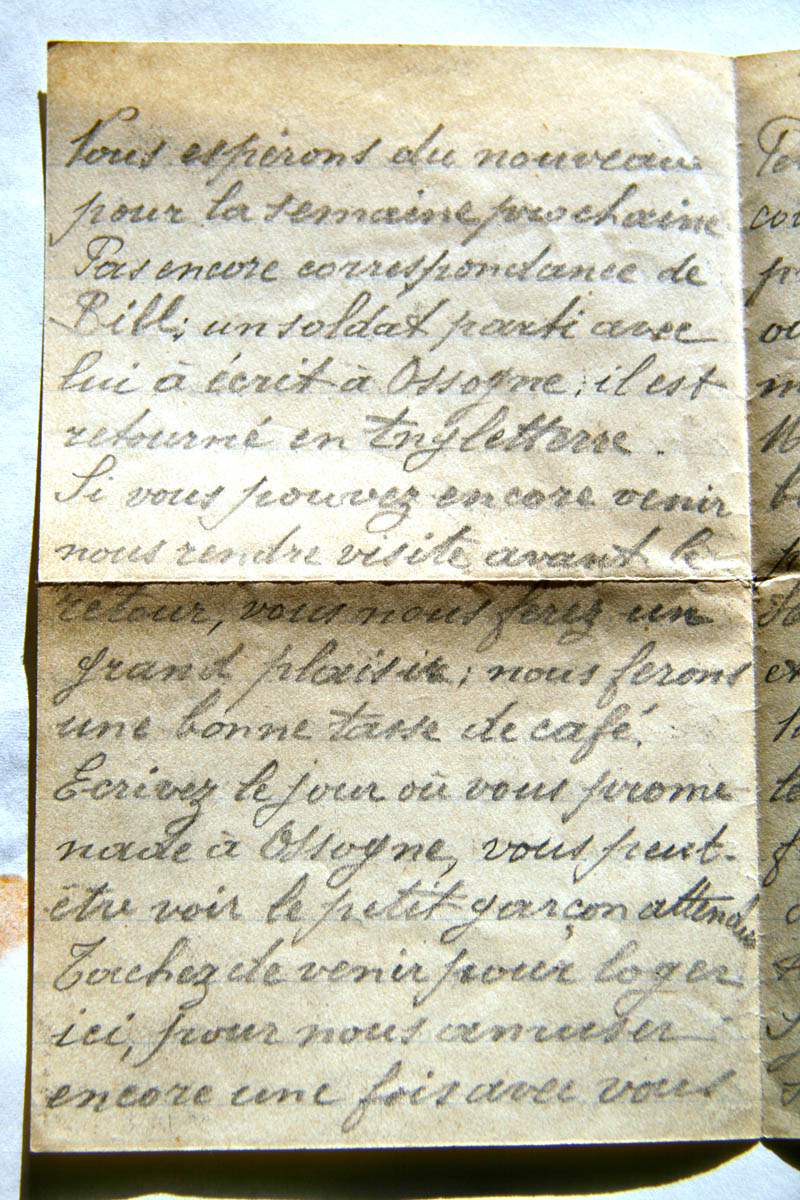 Nous espérons du nouveau
pour la semaine prochaine
Pas encore correspondance de
Bill; un soldat parti avec
lui à écrit à Ossogne; il est
retourné en Angletterre.
Si vous pouvez encore venir
nous rendre visite avant le
retour, vous nous ferez un
grand plaisir; nous ferons
une bonne tasse de café.
Ecrivez le jour où vous prome
nade à Ossogne, vous peut-
être voir le petit garçon attendu
Tachez de venir pour loger
ici, pour nous amuser
encore une fois avec vous